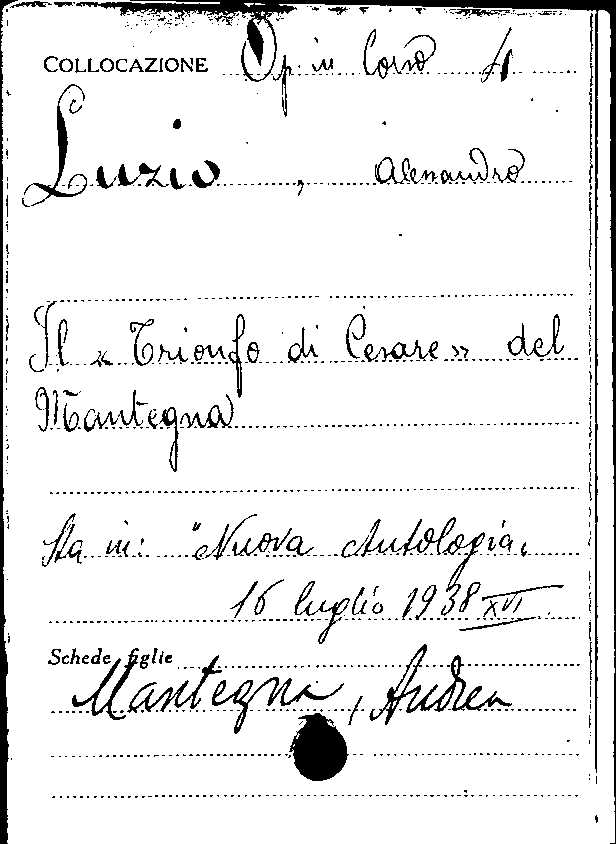 COLLOCAZIONE Op. in Corso 4
Luzio, Alessandro
Il « Trionfo di Cesare » del
Mantegna
Sta in: "Nuova Antologia"
16 luglio 1938 XVI
Schede figlie
Mantegna, Andrea